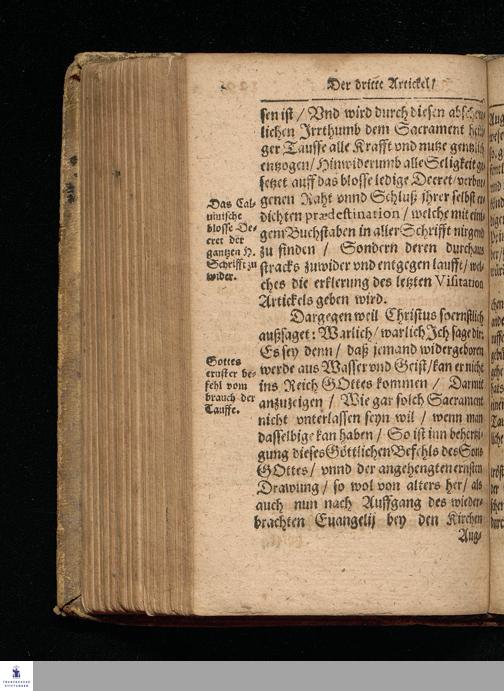 Der dritte Artickel /
sen ist / Vnd wird durch diesen abscheu-
lichen Irrthumb dem Sacrament heili-
ger Tauffe alle Krafft vnd nutze gentzlich
entzogen / Hinwiderumb alle Seligkeit ge-
setzet auff das blosse ledige Decret / verbor-
genen Raht vnnd Schluß ihrer selbst er-
dichten prædestination / welche mit eini-
gem Buchstaben in aller Schrifft nirgend
zu finden / Sondern deren durchaus
stracks zuwider vnd entgegen lauffe / wel-
ches die erklerung des letzten Visitation
Artickels geben wird.
Das Cal-
uinische
blosse De-
cret der
gantzen H.
Schrifft zu
wider.
Dargegen weil Christus so ernstlich
außsaget: Warlich / warlich Ich sage dir:
Es sey denn / daß jemand widergeboren
werde aus Wasser vnd Geist / kan er nicht
ins Reich GOttes kommen / Darmit
anzuzeigen / Wie gar solch Sacrament
nicht vnterlassen seyn wil / wenn man
dasselbige kan haben / So ist inn behertzi-
gung dieses Göttlichen Befehls des Sons
GOttes / vnnd der angehengten ernsten
Drawung / so wol von alters her / als
auch nun nach Auffgang des wieder-
brachten Euangelij bey den Kirchen
Gottes
ernster be-
fehl vom
brauch der
Tauffe.
Aug-